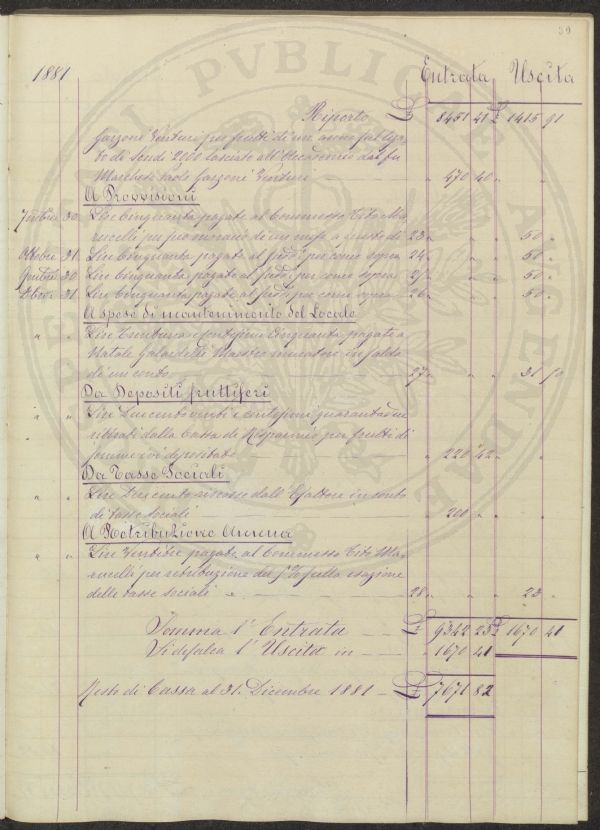 39
1881 Entrata Uscita
Riporto £ 8451 41 £ 1415 91
Garzoni Venturi per frutti di un anno
di Scudi 2000 lasciato all'Accademia dal fu
Marchese Paolo Garzoni Venturi — 470 40
A Provvisioni
30 Lire Cinquanta pagate al Commesso Tito Ma-
rucelli per di un mese a questo dì 23 " " " 50 "
Ottobre 31 Lire Cinquanta pagate al sudd. per come sopra 24 " " " 50 "
30 Lire Cinquanta pagate al sudd. per come sopra 25 " " " 50 "
Xbre 31 Lire Cinquanta pagate al sudd. per come sopra 26 " " " 50 "
A Spese di mantenimento del Locale
" " Lire Trentuna e centesimi Cinquanta pagate a
Natale Maestro muratore in saldo
di un conto 27 " " " 31 50
Da Depositi fruttiferi
" " Lire Duecento venti e centesimi quarantadue
ritirati dalla Cassa di Risparmio per frutti di
somme ivi depositate — " 220 42 " "
Da Tasse Sociali
" " Lire Duecento riscosse dall'Esattore in conto
di tasse sociali — " 200 " " "
A Retribuzione Annua
" " Lire Ventitre pagate al Commesso Tito Ma-
rucelli per retribuzione del 5% sulla esazione
delle tasse sociali " — 28 " " " 23 "
Somma l'Entrata — £ 9342 23 £ 1670 41
Si defalca l'Uscita in — " 1670 41
Resto di Cassa al 31. Dicembre 1881 — £ 7671 82